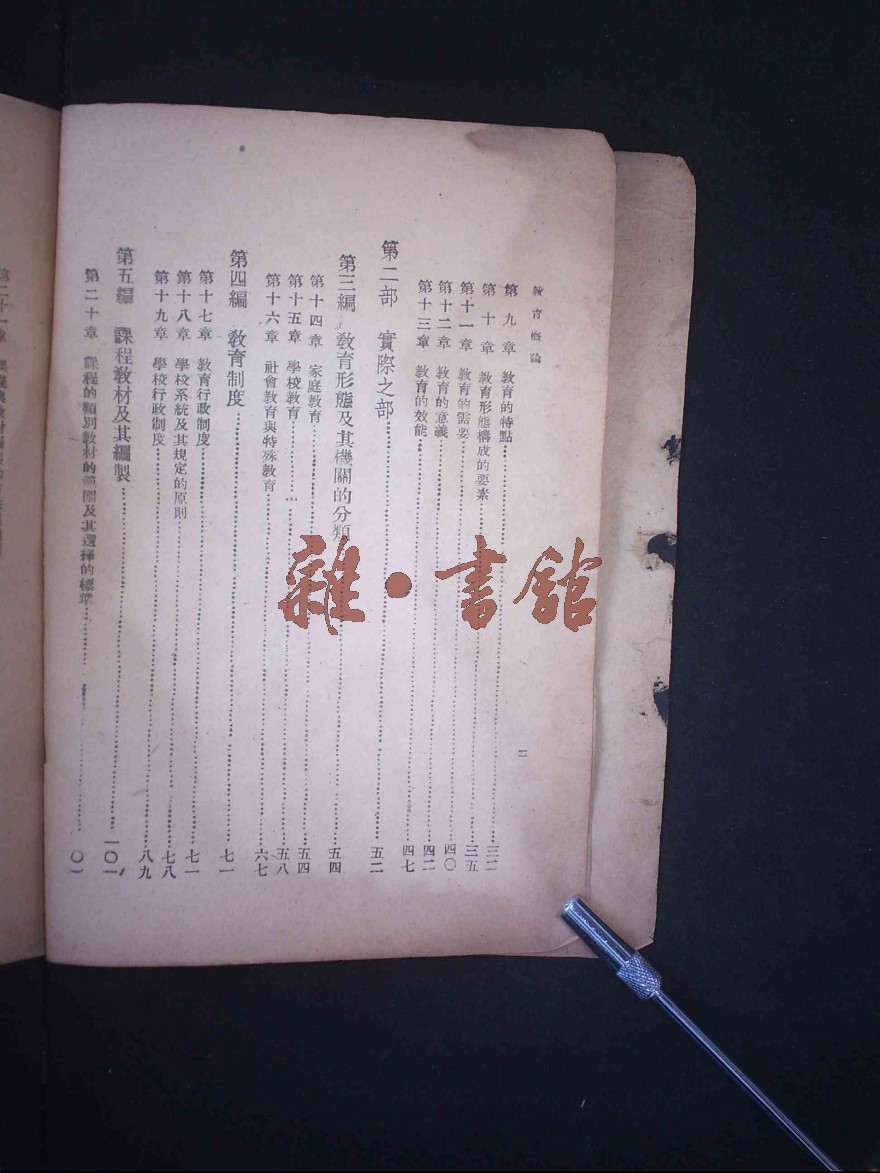 教育概論
二
第九章 教育的特點……三二
第十章 教育形態構成的要素……三五
第十一章 教育的需要……四〇
第十二章 教育的意義……四二
第十三章 教育的效能……四七
第二部 實際之部……五二
第三編 教育形態及其機關的分類……五四
第十四章 家庭教育……五四
第十五章 學校教育……五八
第十六章 社會教育與特殊教育……六七
第四編 教育制度……七一
第十七章 教育行政制度……七一
第十八章 學校系統及其規定的原則……七八
第十九章 學校行政制度……八九
第五編 課程教材及其編製……一〇一
第二十章 課程的類別教材的範圍及其選擇的標準……〇一
第二十一章
雜·書館